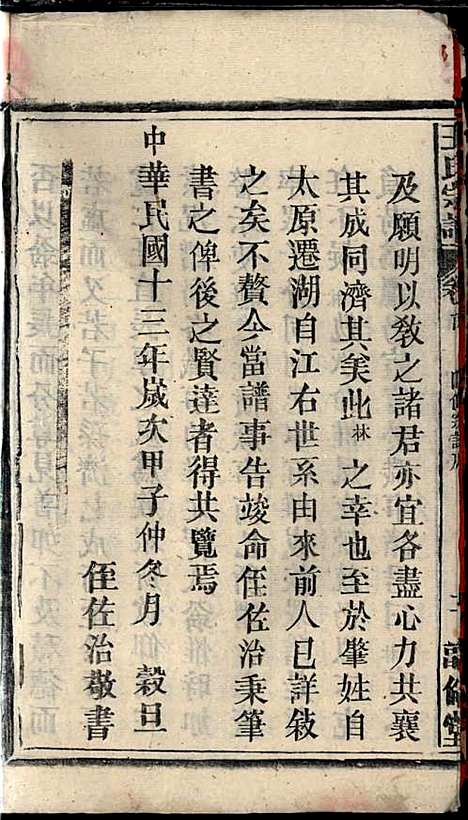 王氏宗譜 卷首 四修宗譜序
及願明以敎之諸君亦宜各盡心力共襄
其成同濟其美此林之幸也至於肇姓自
太原遷湖自江右世系由來前人已詳敘
之矣不贅今當譜事告竣命侄佐治秉筆
書之俾後之賢達者得共覽焉
中華民國十三年歲次甲子仲冬月 穀旦
侄佐治敬書